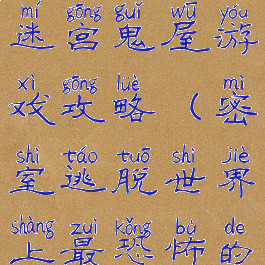 mí gōng guǐ wū yóu
迷宫鬼屋游
xì gōng luè mì
戏攻略（密
shì táo tuō shì jiè
室逃脱世界
shàng zuì kǒng bù de
上最恐怖的